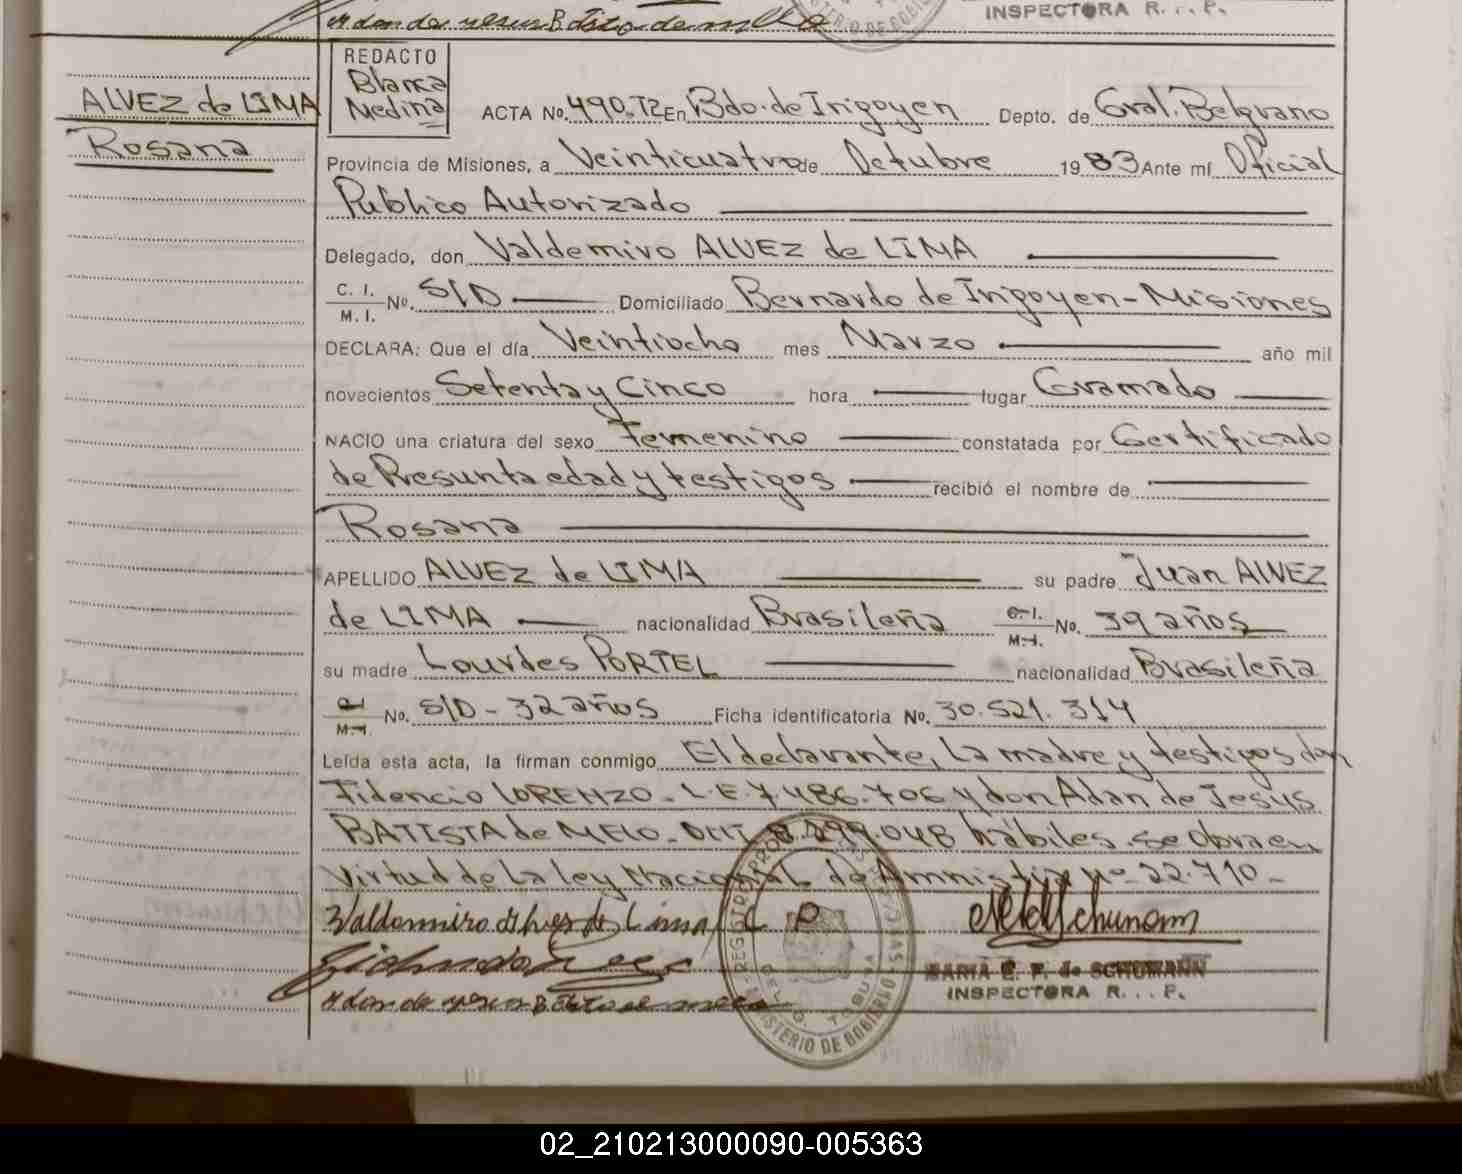 INSPECTORA R. . . P.
REDACTO
Blanca
Medina
ALVEZ de LIMA
Rosana
ACTA No. 490. T2 En Bdo. de Irigoyen Depto. de Gral. Belgrano
Provincia de Misiones, a Veinticuatro de Octubre 1983 Ante mí Oficial
Publico Autorizado
Delegado, don Valdemiro ALVEZ de LIMA
C. I.
M. I. No. S/D Domiciliado Bernardo de Irigoyen - Misiones
DECLARA: Que el día Veintiocho mes Marzo año mil
novecientos Setenta y Cinco hora lugar Gramado
NACIO una criatura del sexo Femenino constatada por Certificado
de Presunta edad y testigos recibió el nombre de
Rosana
APELLIDO ALVEZ de LIMA su padre Juan ALVEZ
de LIMA nacionalidad Brasileña C. I. M. I. No. 39 años
su madre Lourdes PORTEL nacionalidad Brasileña
M. I. No. S/D - 32 años Ficha identificatoria No. 30.521.314
Leída esta acta, la firman conmigo El declarante, La madre y testigos don
Fidencio LORENZO - L.E. 7.486.706 y don Adan de Jesus
BATISTA de MELO - DNI 8.299.048 hábiles. se Obra en
Virtud de La ley Nacional de Amnistia Nº 22.710 -
Valdomiro Alves de Lima
MARIA E. F. de SCHUMANN
INSPECTORA R. . . P.
MINISTERIO DE GOBIERNO
02_210213000090-005363